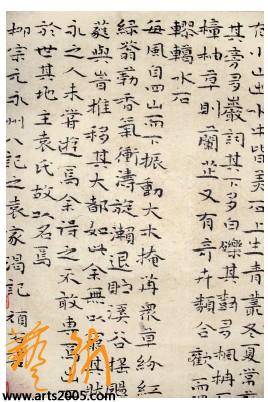 在小山出水中皆美石上青叢冬夏常
其旁多巖洞其下多白礫其樹多楓柟
橦柚草則蘭芷又有奇卉類合歡而
轇轕水石
每風自四山而下振動大木掩苒衆草紛紅
綠蓊葧香氣衝濤旋瀨退貯溪谷搖颺
蕤與時推移其大都如此余無以窮其狀
永之人未嘗遊焉余得之不敢專焉出
於世其地主袁氏故以名焉
柳宗元永州八記之袁家渴記
藝術
www.arts2005.com